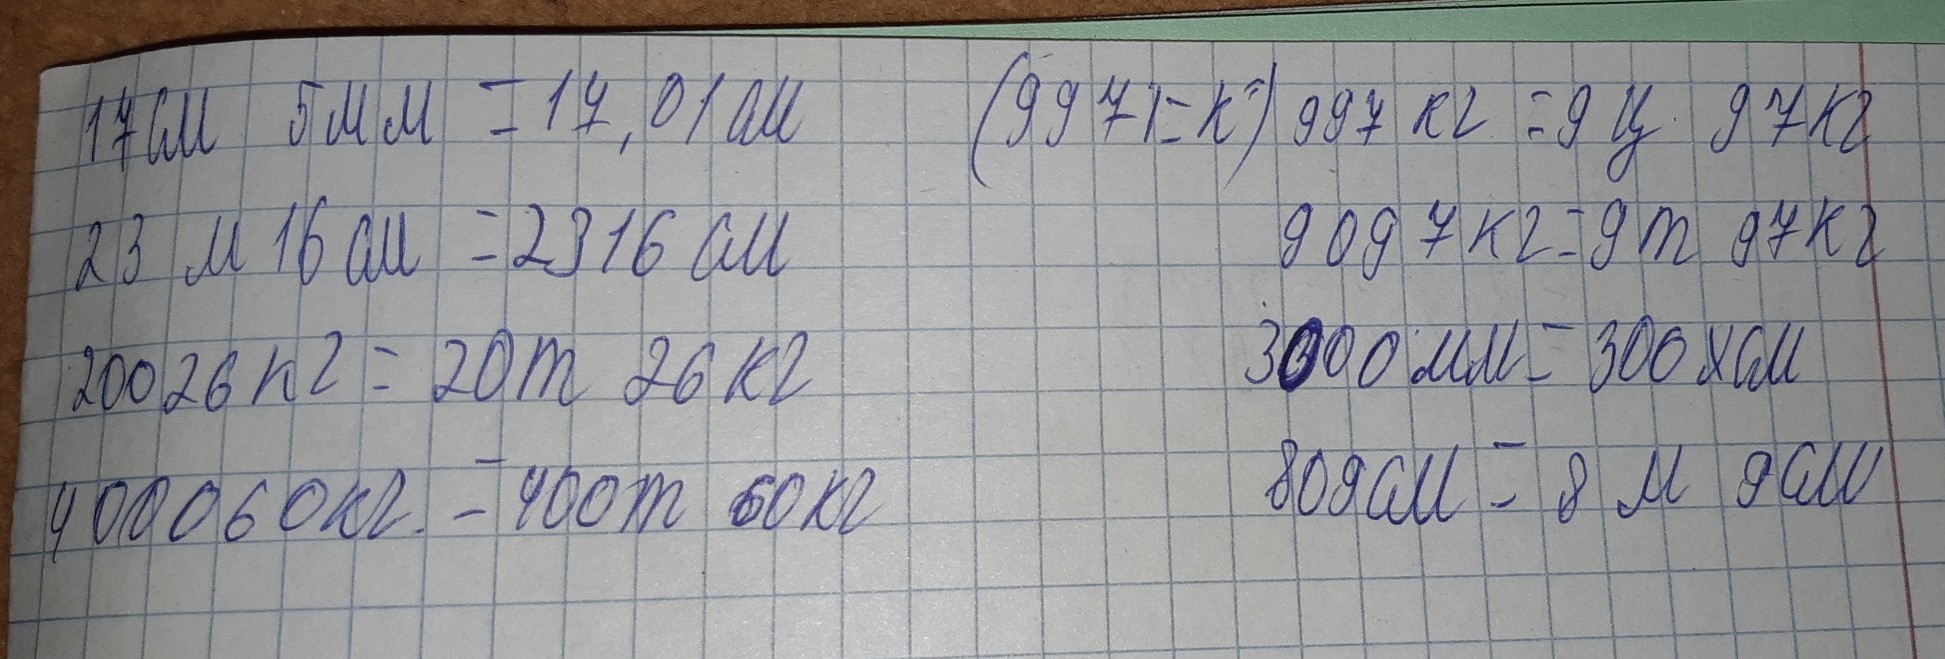 17см 5мм = 17,01см
23 м 16 см = 2316 см
20026кг = 20т 26 кг
400060кг. = 400т 60кг
(9971=к) 997 кг = 9 ц 97кг
9097кг = 9т 97кг
3000 мм = 300 см
809см = 8 м 9см